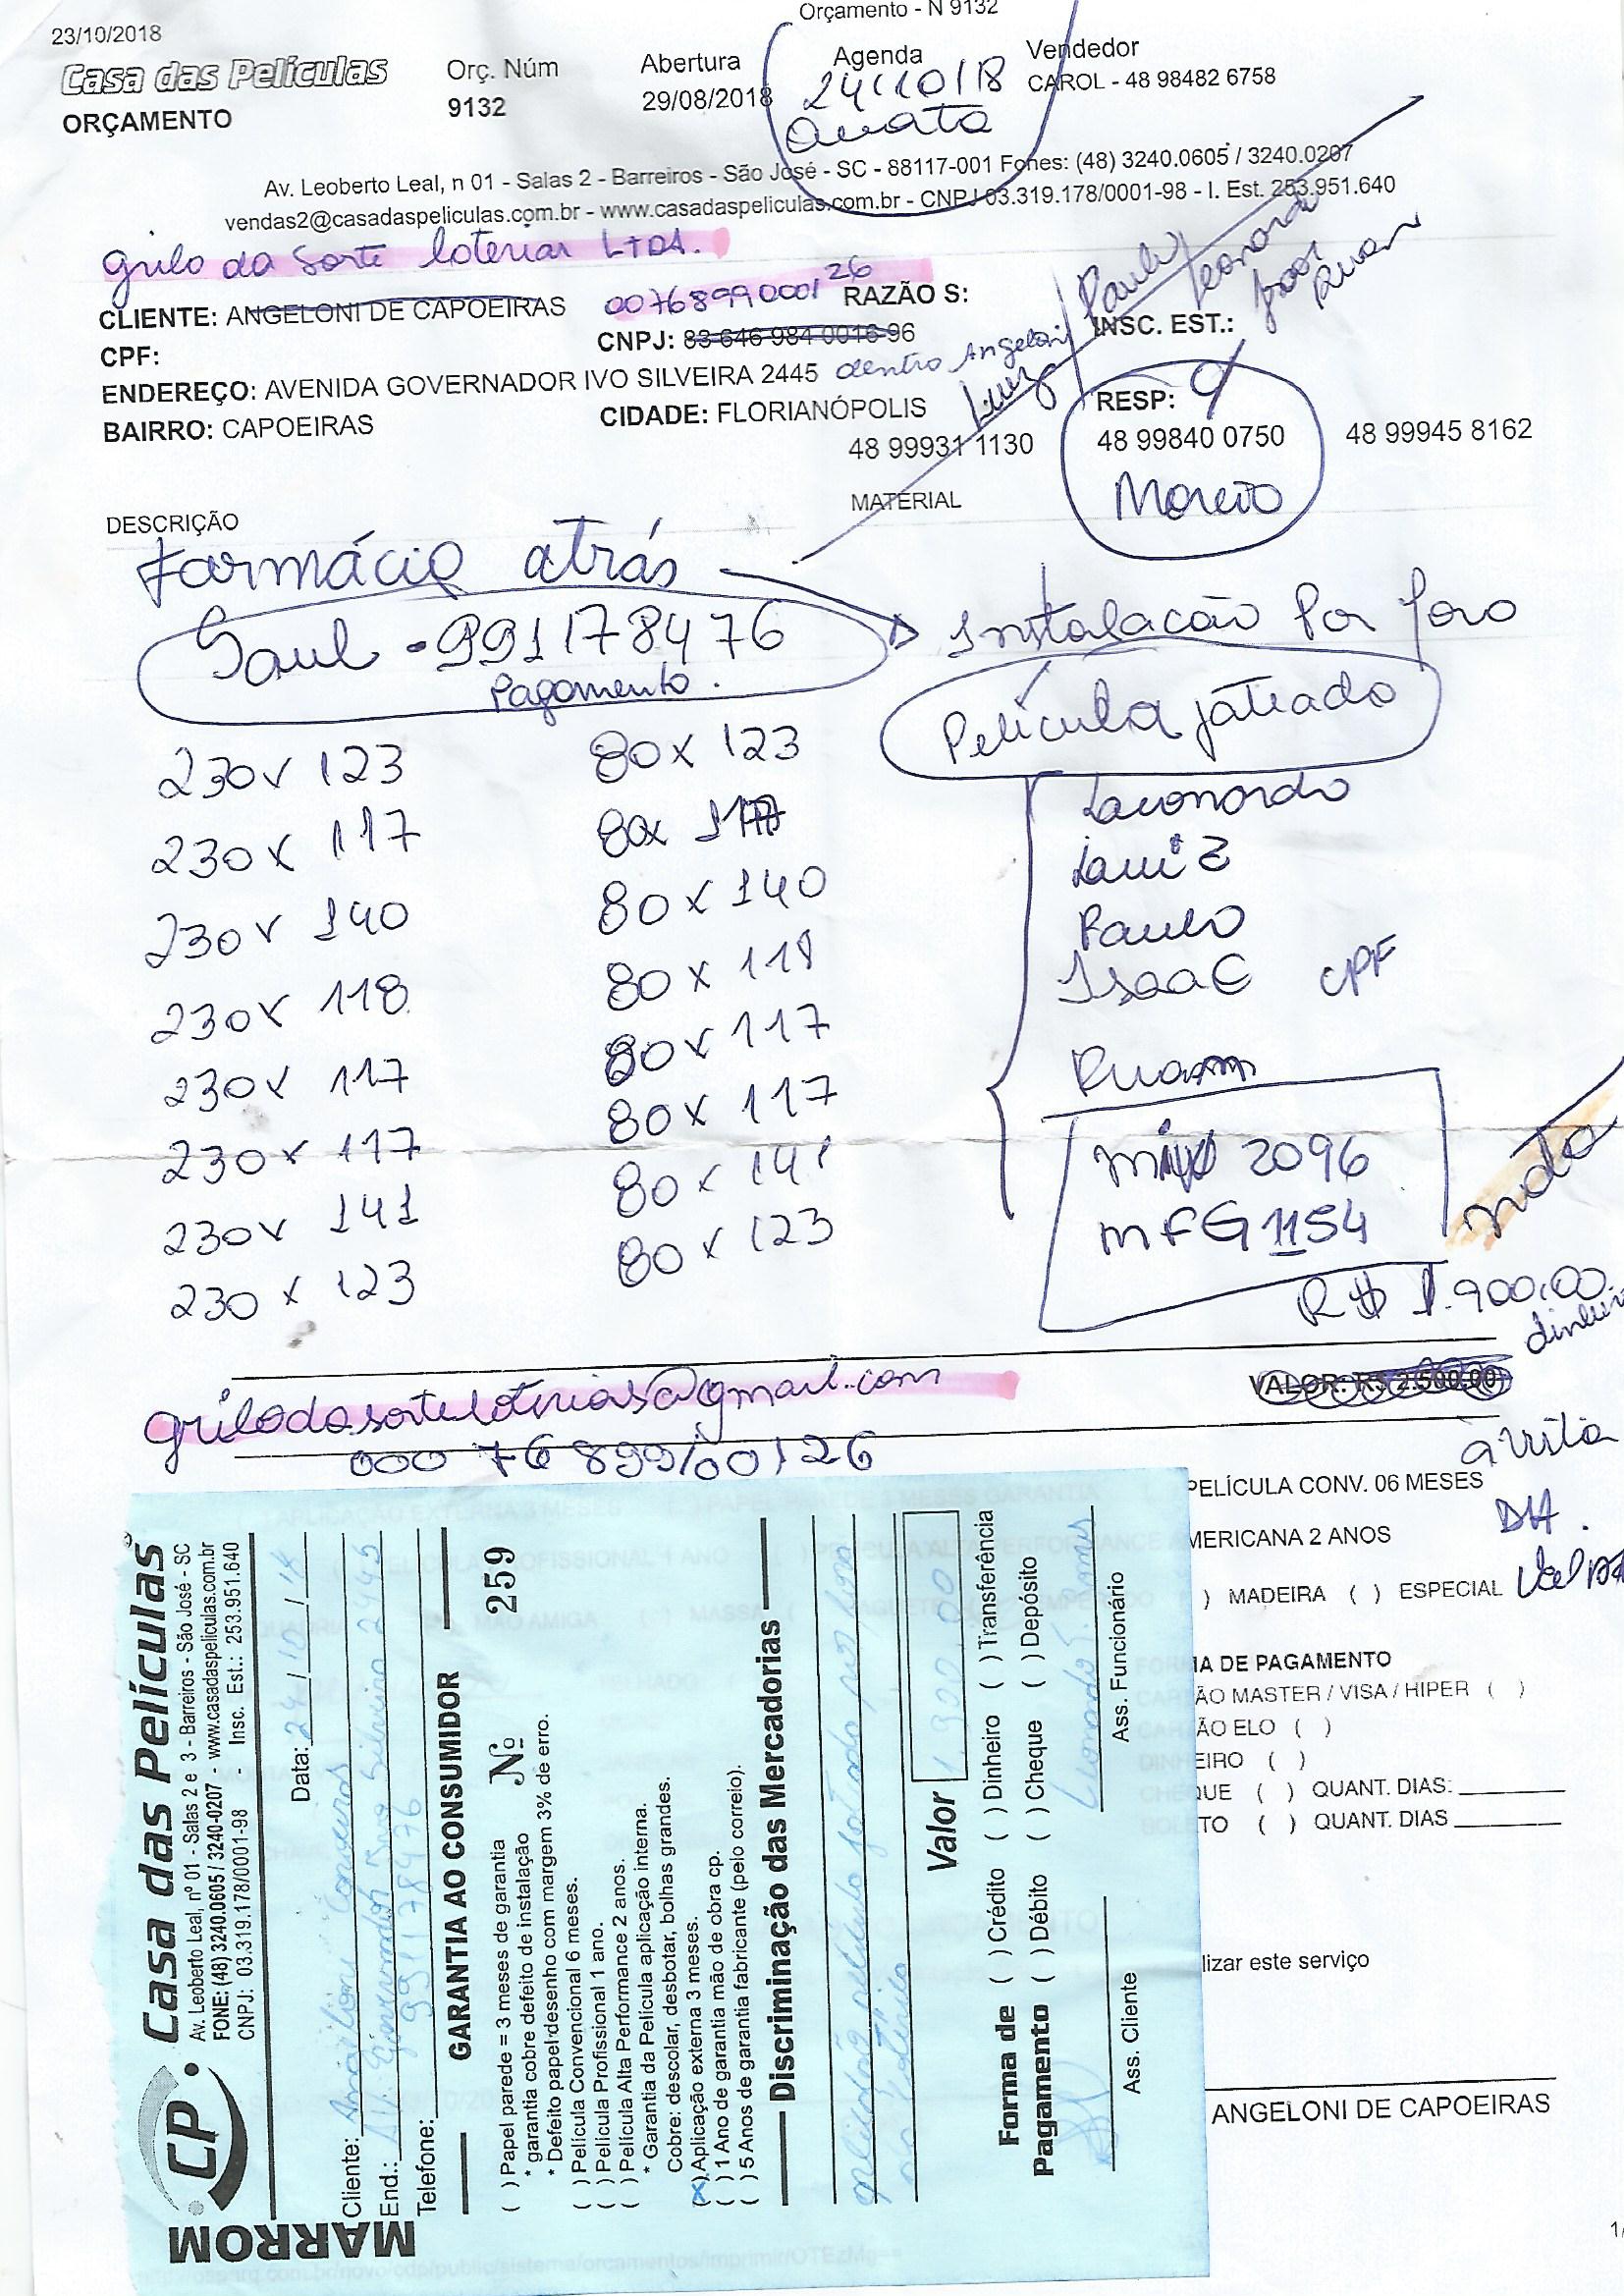 Orçamento - N 9132
23/10/2018
Casa das Películas
ORÇAMENTO
Orç. Núm
9132
Abertura
29/08/2018
Agenda
24/10/18
Vendedor
CAROL - 48 98482 6758
Av. Leoberto Leal, n 01 - Salas 2 - Barreiros - São José - SC - 88117-001 Fones: (48) 3240.0605 / 3240.0207
vendas2@casadaspeliculas.com.br - www.casadaspeliculas.com.br - CNPJ 03.319.178/0001-98 - I. Est. 253.951.640
Grilo da Sorte loterias LTDA.
Paulo
Leonardo
Isaac
Ruan
Luiz
00768990001 26
CLIENTE: ANGELONI DE CAPOEIRAS
RAZÃO S:
CPF:
CNPJ: 83 646 984 0016-96
INSC. EST.:
ENDEREÇO: AVENIDA GOVERNADOR IVO SILVEIRA 2445 dentro Angeloni
BAIRRO: CAPOEIRAS
CIDADE: FLORIANÓPOLIS
RESP:
48 99931 1130
48 99840 0750
48 99945 8162
DESCRIÇÃO
MATERIAL
Farmácia atrás
Saul - 991178476
Pagamento.
Instalacão Por fora
Película jateado
230 x 123
80 x 123
230 x 117
80x
230 x 140
80 x 140
230 x 118
80 x 118
230 x 117
80 x 117
230 x 117
80 x 117
230 x 141
80 x 141
230 x 123
80 x 123
Leonardo
Luiz
Paulo
Isaac CPF
Ruan
2096
MFG 1154
nota
R$ 1.900,00
VALOR: R$ 2.500,00
grilodasorteloterias@gmail.com
000 76 899/00126
à vista
PELÍCULA CONV. 06 MESES
MERICANA 2 ANOS
) MADEIRA ( ) ESPECIAL
A DE PAGAMENTO
ÃO MASTER / VISA / HIPER ( )
ÃO ELO ( )
EIRO ( )
QUE ( ) QUANT. DIAS:
TO ( ) QUANT. DIAS
lizar este serviço
ANGELONI DE CAPOEIRAS
MARROM
CP
Casa das Películas
Av. Leoberto Leal, nº 01 - Salas 2 e 3 - Barreiros - São José - SC
FONE: (48) 3240.0605 / 3240-0207 - www.casadaspeliculas.com.br
CNPJ: 03.319.178/0001-98 - Insc. Est.: 253.951.640
Data: 24/10/18
Cliente: Angeloni Capoeiras
End.: Av. Governador Ivo Silveira 2445
Telefone: 991178476
GARANTIA AO CONSUMIDOR
Nº 259
( ) Papel parede = 3 meses de garantia
* garantia cobre defeito de instalação
* Defeito papel desenho com margem 3% de erro.
( ) Película Convencional 6 meses.
( ) Película Profissional 1 ano.
( ) Película Alta Performance 2 anos.
* Garantia da Película aplicação interna.
Cobre: descolar, desbotar, bolhas grandes.
(x) Aplicação externa 3 meses.
( ) 1 Ano de garantia mão de obra cp.
( ) 5 Anos de garantia fabricante (pelo correio).
Discriminação das Mercadorias
aplicação película jateado por fora
Valor 1.900,00
Forma de Pagamento
( ) Crédito ( ) Dinheiro ( ) Transferência
( ) Débito ( ) Cheque ( ) Depósito
Ass. Cliente
Ass. Funcionário